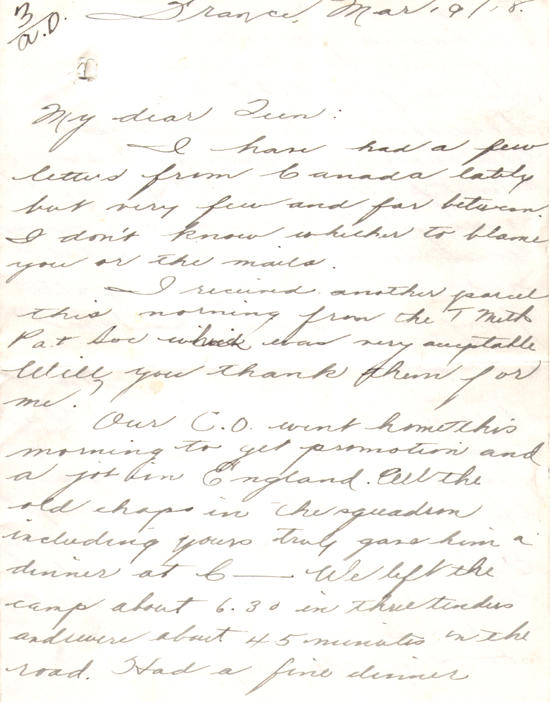 3/a.D.
France, Mar. 9/18.
My dear Teen:
I have had a few
letters from Canada lately
but very few and far between.
I don't know whether to blame
you or the mails.
I received another parcel
this morning from the T Meth
Pat Soc which was very acceptable
Will you thank them for
me.
Our C.O. went home this
morning to get promotion and
a job in England. All the
old chaps in the squadron
including yours truly gave him a
dinner at C—— We left the
camp about 6.30 in three tenders
and were about 45 minutes on the
road. Had a fine dinner